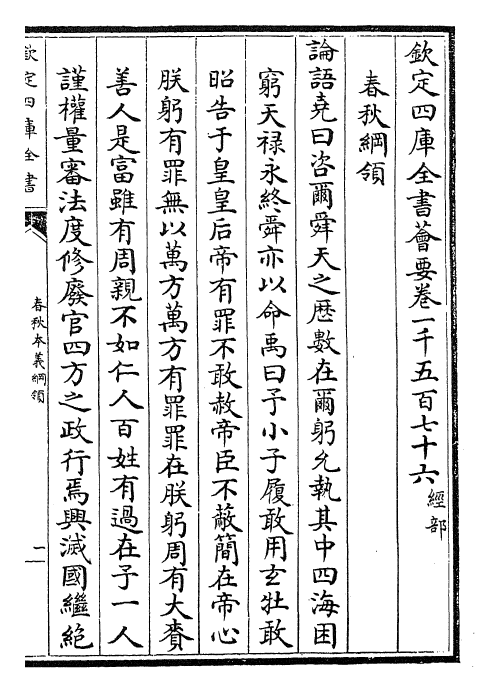 欽定四庫全書薈要卷一千五百七十六 經部
春秋綱領
論語堯曰咨爾舜天之厯數在爾躬允執其中四海困
窮天禄永終舜亦以命禹曰予小子履敢用玄牡敢
昭告于皇皇后帝有罪不敢赦帝臣不蔽簡在帝心
朕躬有罪無以萬方萬方有罪罪在朕躬周有大賚
善人是富雖有周親不如仁人百姓有過在予一人
謹權量審法度修廢官四方之政行焉興滅國繼絶
欽定四庫全書
春秋本義綱領
一